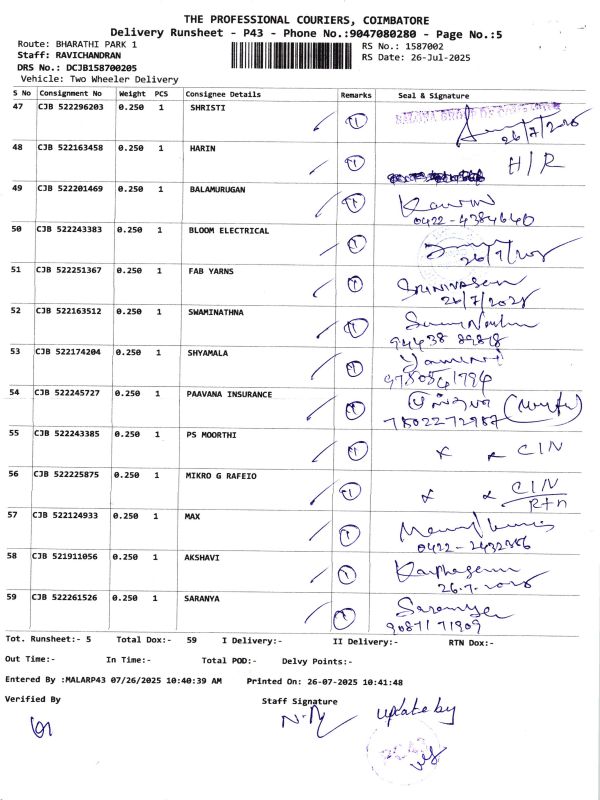 THE PROFESSIONAL COURIERS, COIMBATORE
Delivery Runsheet - P43 - Phone No.:9047080280 - Page No.:5
Route: BHARATHI PARK 1 RS No.: 1587002
Staff: RAVICHANDRAN RS Date: 26-Jul-2025
DRS No.: DCJB158700205
Vehicle: Two Wheeler Delivery
S No Consignment No Weight PCS Consignee Details Remarks Seal & Signature
47 CJB 522296203 0.250 1 SHRISTI
26/7/2025
48 CJB 522163458 0.250 1 HARIN H/R
49 CJB 522201469 0.250 1 BALAMURUGAN
0422-4384640
50 CJB 522243383 0.250 1 BLOOM ELECTRICAL
51 CJB 522251367 0.250 1 FAB YARNS SRINIVASAN
26/7/2025
52 CJB 522163512 0.250 1 SWAMINATHNA
94438 89818
53 CJB 522174204 0.250 1 SHYAMALA
54 CJB 522245727 0.250 1 PAAVANA INSURANCE
55 CJB 522243385 0.250 1 PS MOORTHI CIN
56 CJB 522225875 0.250 1 MIKRO G RAFEIO CIN
Rtn
57 CJB 522124933 0.250 1 MAX
58 CJB 521911056 0.250 1 AKSHAVI
26.7.2025
59 CJB 522261526 0.250 1 SARANYA Saranya
9087171909
Tot. Runsheet:- 5 Total Dox:- 59 I Delivery:- II Delivery:- RTN Dox:-
Out Time:- In Time:- Total POD:- Delvy Points:-
Entered By :MALARP43 07/26/2025 10:40:39 AM Printed On: 26-07-2025 10:41:48
Verified By Staff Signature update by